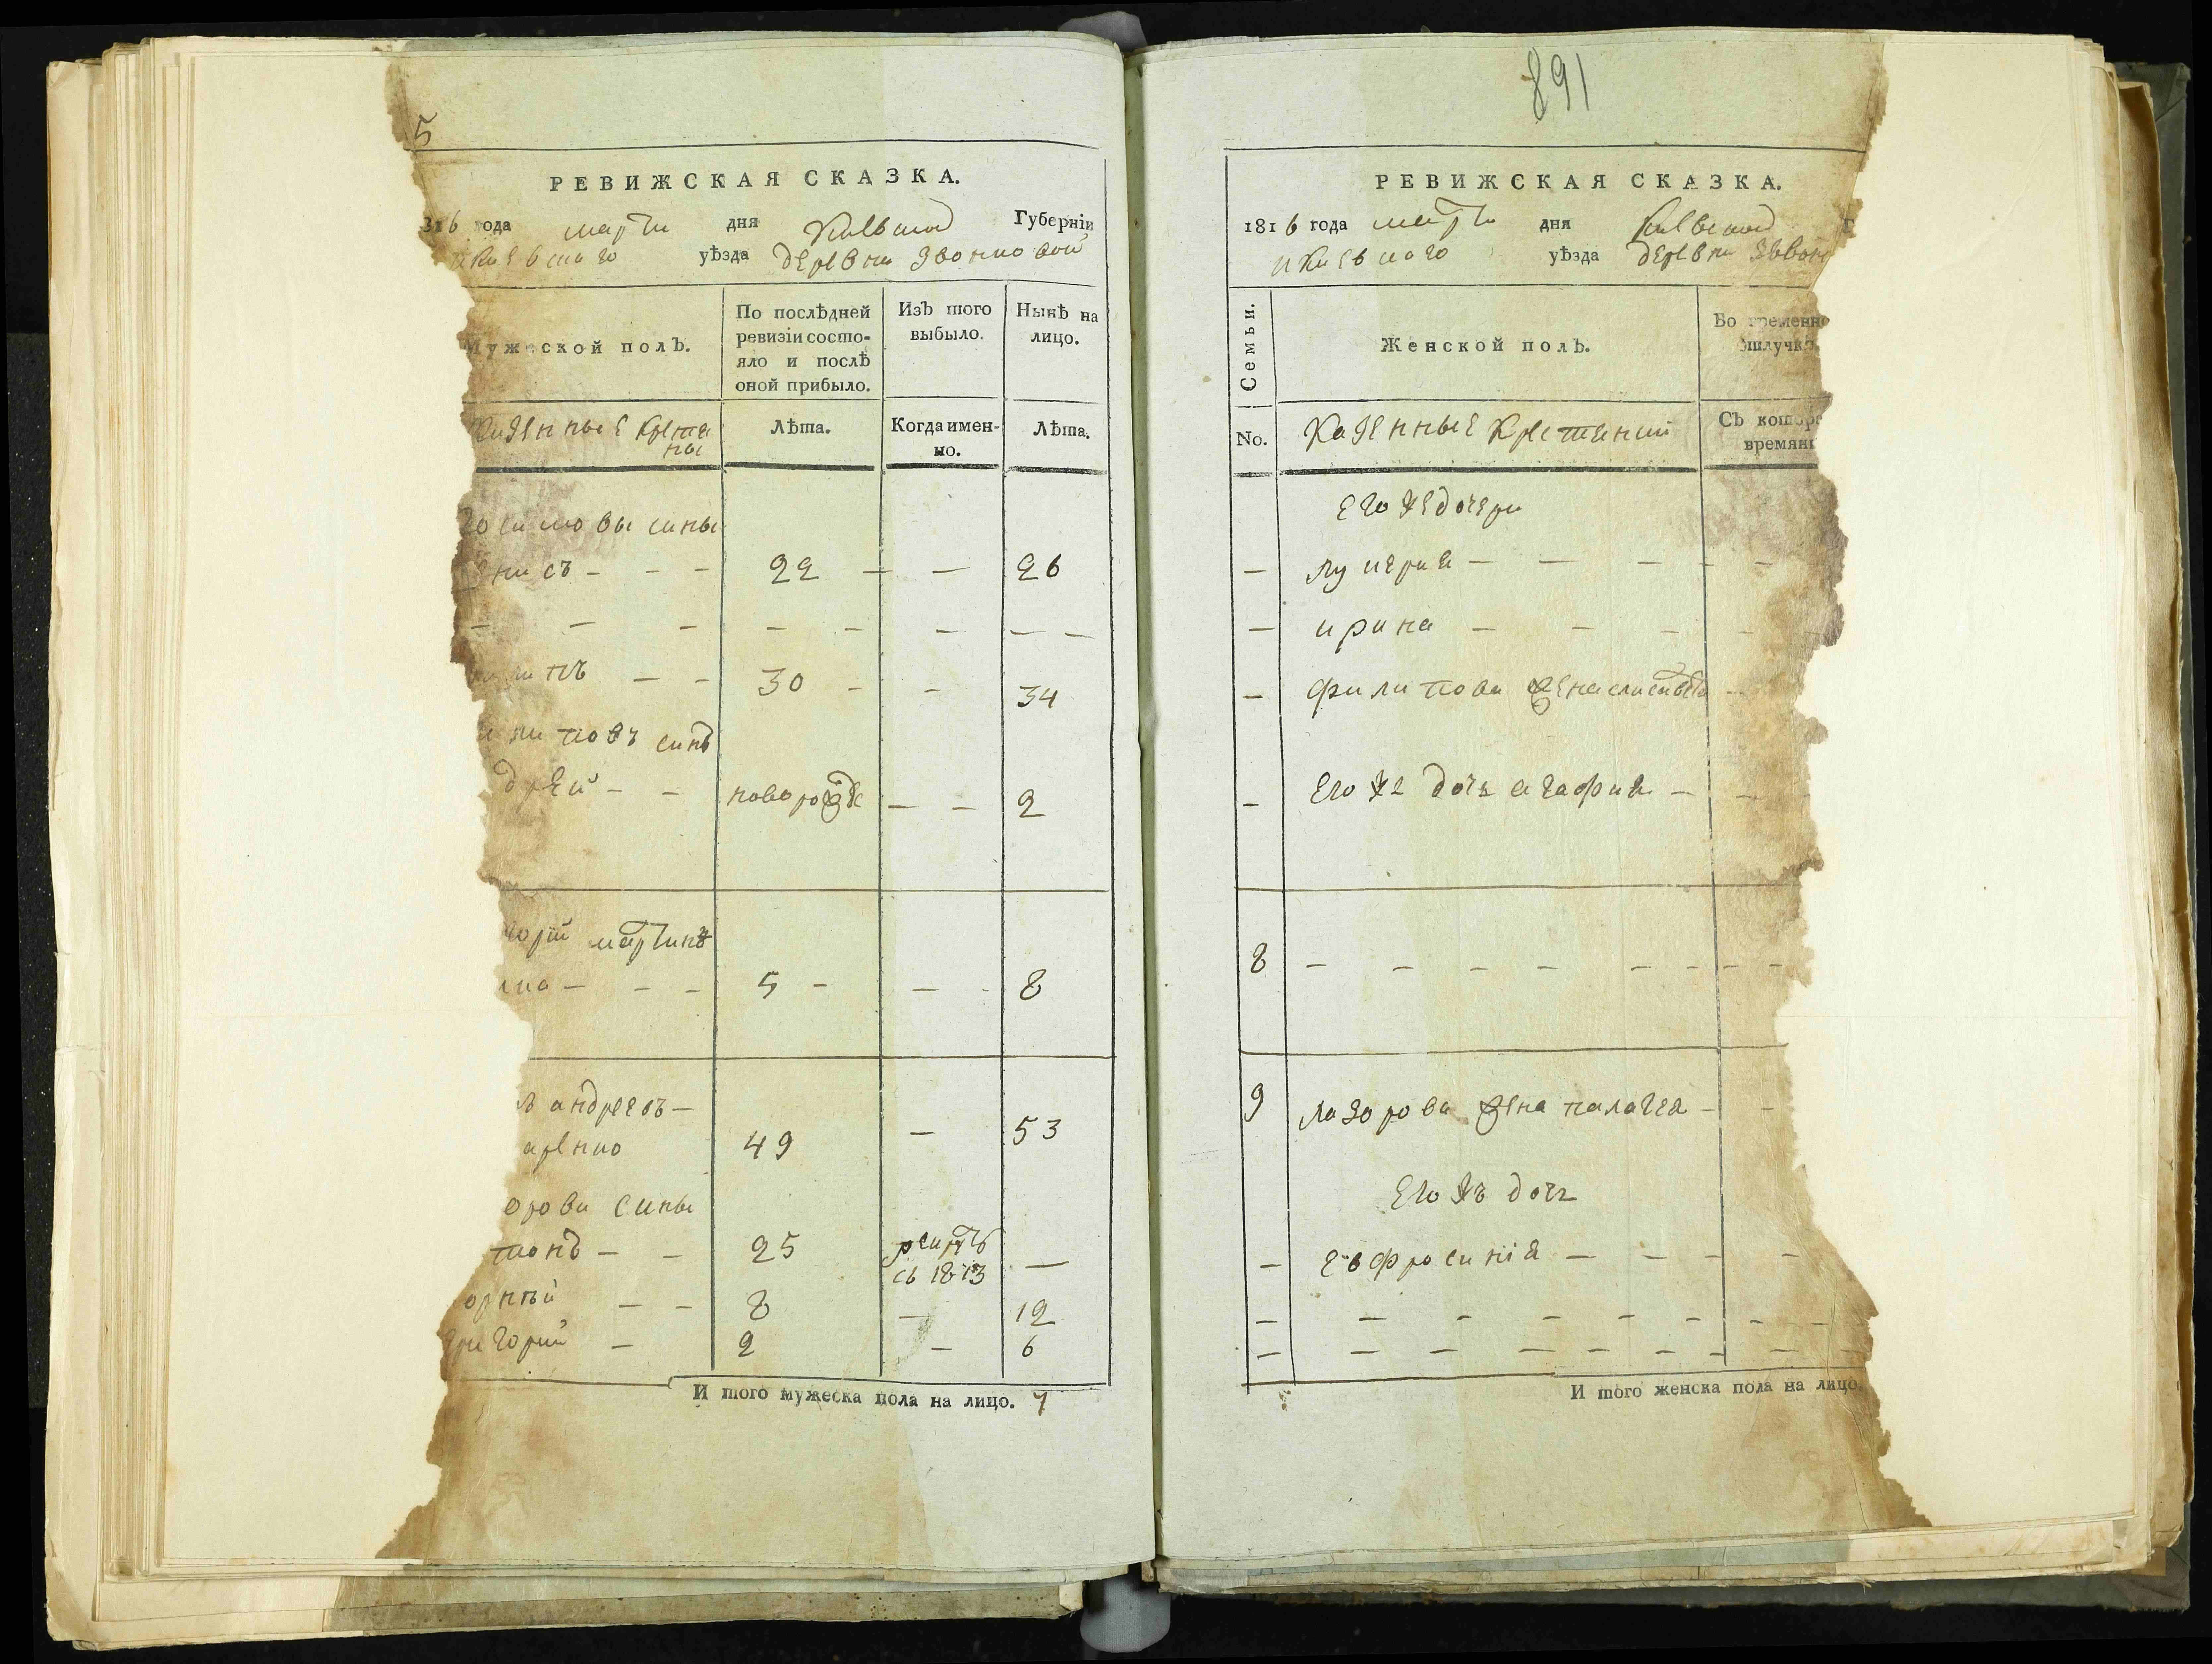 5
РЕВИЖСКАЯ СКАЗКА.
года марта дня Киевской Губерніи
Киевского уѣзда деревни Звонковой
Мужеской полъ.
По послѣдней ревизіи состо-
яло и послѣ
оной прибыло.
Изъ того
выбыло.
Нынѣ на
лицо.
Казенные крестя
ны
Лѣта.
Когда имен-
но.
Лѣта.
симовы сины
енисъ - - - 22 - - 26
- - - - - - - -
ипъ - - 30 - - 34
липовъ синъ
дрей - - новорожде - - 2
горій мартинъ
ко - - - 5 - - - 8
ъ андреевъ -
аренко 49 - 53
орови сины
тонъ - - 25 рекрутъ
съ 1813 -
орній - - 8 - 12
Григорий - 2 - 6
И того мужеска пола на лицо. 7
891
РЕВИЖСКАЯ СКАЗКА.
1816 года марта дня Киевской Г
и Киевского уѣзда деревни Звонк
Семьи.
Женской полъ.
Во временно
отлучкѣ
No.
Казенные крестянки
Съ котор
времяни
его же дочери
- лукерия - - - - -
- ирина - - - - -
- филипова жена -
- его же дочь агафия - -
8 - - - - - - - -
9 лазорова жена палагея - -
его жъ дочь
- евфросинія - - - -
- - - - - - - -
- - - - - - - - -
И того женска пола на лицо.